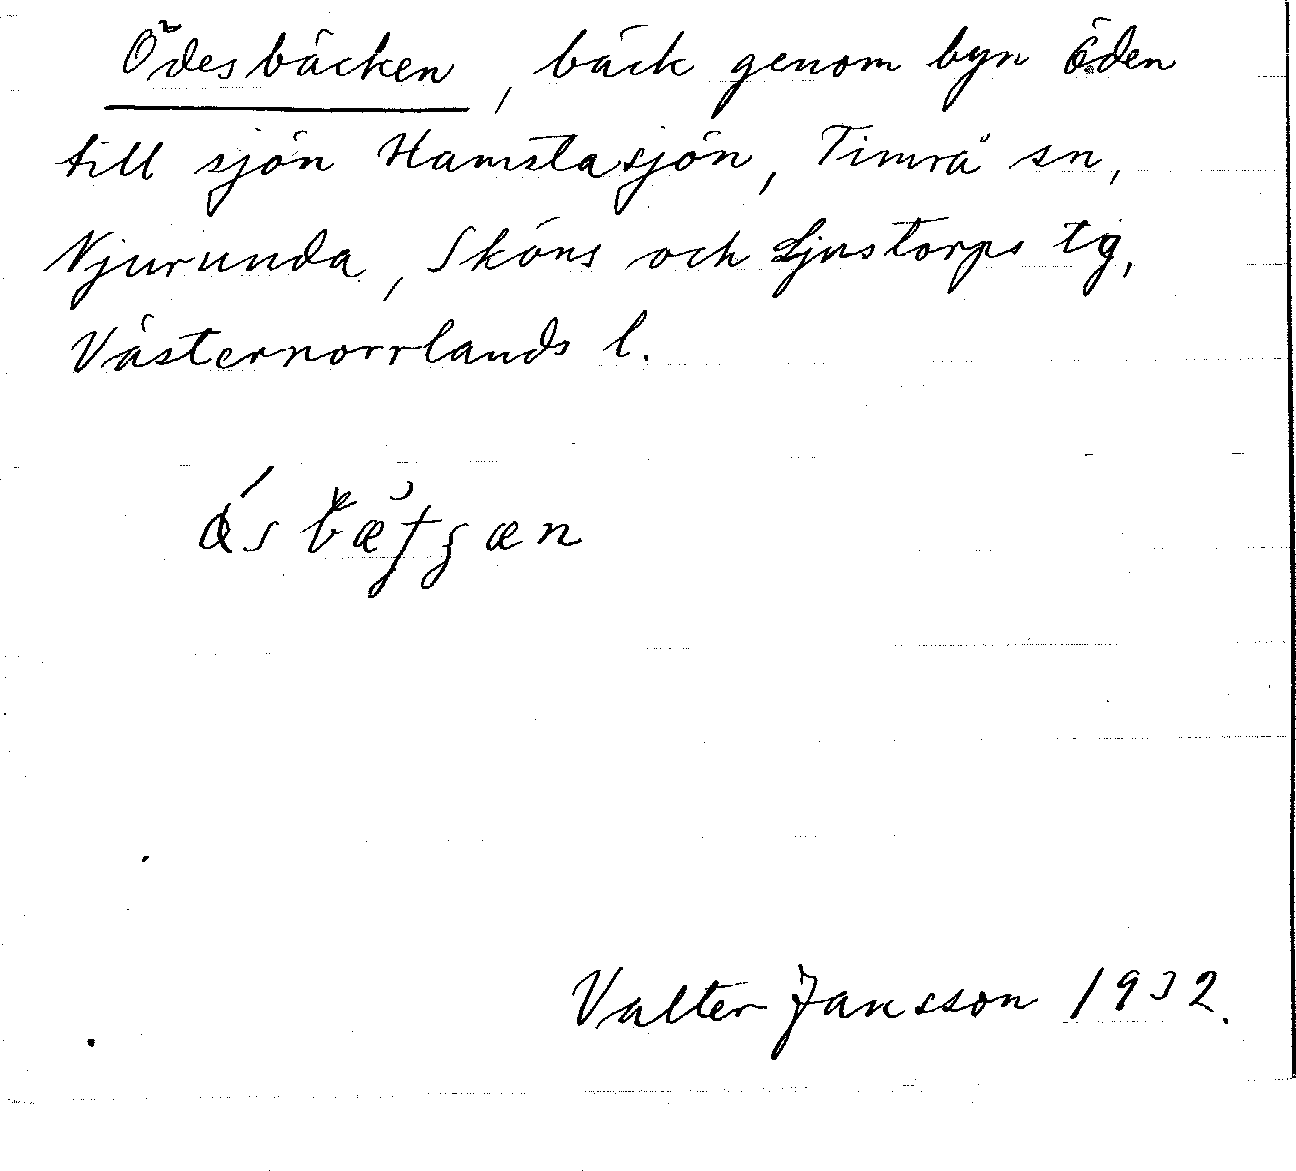 Ödesbäcken, bäck genom byn Öden
till sjön Hamstasjön, Timrå sn,
Njurunda, Sköns och Ljustorps tg,
Västernorrlands l.
Valter Jansson 1932.